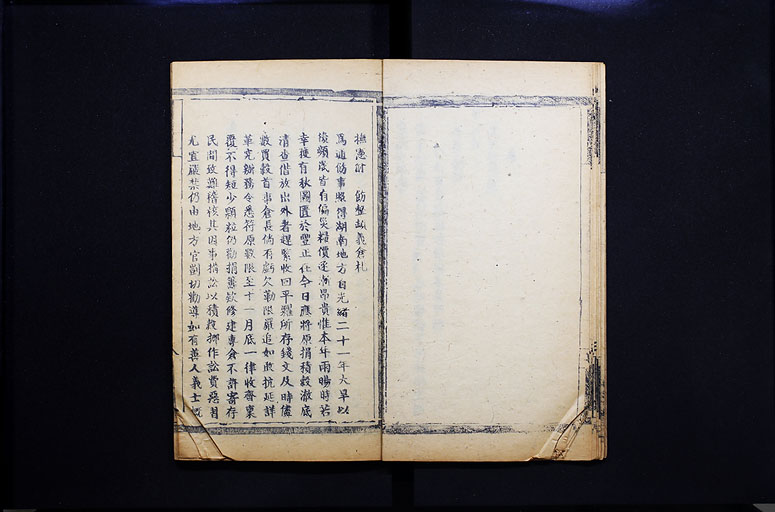 撫憲討 飭整頓義倉札
爲通飭事照得湖南地方自光緒二十一年大旱以
後頻歲皆有偏災糧價逐漸昂貴惟本年雨暘時若
幸獲有秋圖匱於豐正在今日應將原捐積穀澈底
清查借放出外者趕緊收回平糶所存錢文及時儘
數買穀首事倉長倘有虧欠勒限嚴追如敢抗延詳
革究辦務令悉符原數限至十一月底一律收齊稟
覆不得短少顆粒仍勸捐籌款修建專倉不許寄存
民間致難稽核其因事構訟以積穀挪作訟費惡習
尤宜嚴禁仍由地方官剴切勸導如有善人義士慨